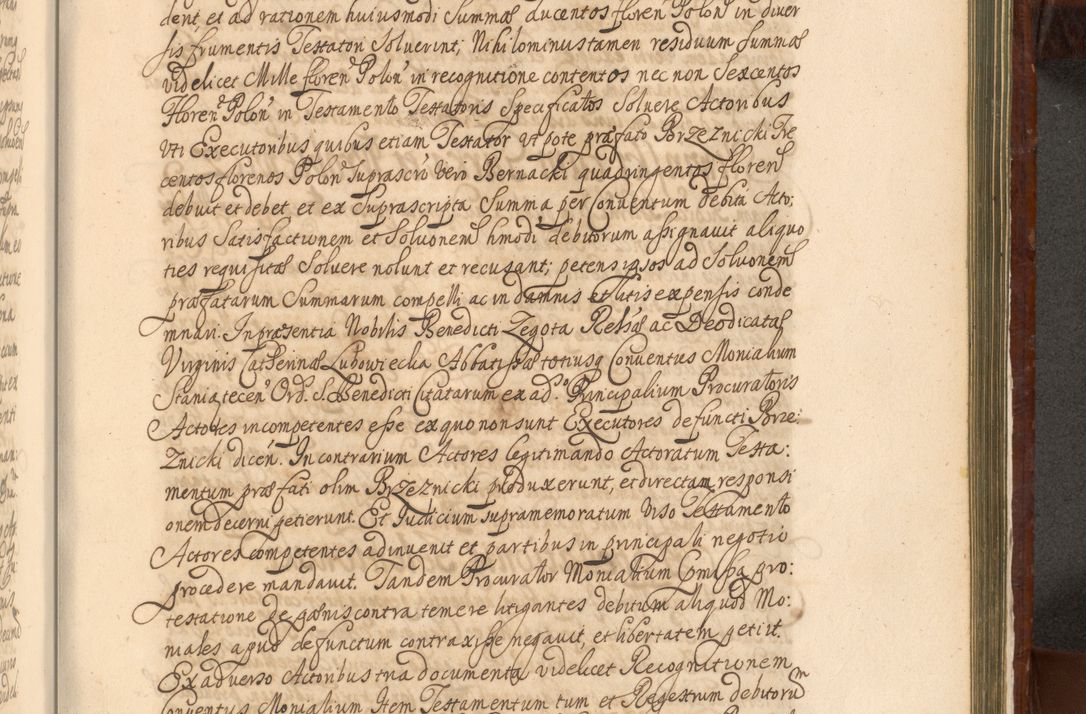 dent, et ad rationem huiusmodi Summæ ducentos floren Polon in diver
sis frumentis Testatori Solverint, Nihilominus tamen residuum Summæ
videlicet Mille floren Polon in recognitione contentos nec non Sexcentos
Floren Polon in Testamento Testatoris Specificatos Solvere Actoribus
uti Executoribus quibus etiam Testator ut pote præfato Brzeznicki Tre
centos florenos Polon Suprascri vero Bernacki quadringentos floren
debuit et debet et ex Suprascripta Summa per Conventum debita Acto:
ribus Satisfactionem et Soluonem hmodi debitorum assignavit aliquo
ties requisitæ Solvere nolunt et recusant; petens ipsos ad Soluonem
præfatarum Summarum compelli ac in damnis et litis expensis conde
mnari. In præsentia Nobilis Benedicti Zegota Relsæ ac Deodicatæ
Virginis Catherinæ Ludowiecka Abbatissæ totiusq Conventus Monialium
Staniątecen Ord. S. Benedicti Citatarum ex ad.o Principalium Procuratoris
Actores incompetentes esse ex quo non sunt Executores defuncti Brze:
znicki dicen. In contrarium Actores legitimando Actoratum Testa:
mentum præfati olim Brzeznicki produxerunt, et directam responsi
onem decerni petierunt. Et Judicium supramemoratum viso Testamento
Actores competentes adinvenit et partibus in principali negotio
procedere mandavit. Tandem Procurator Monialium præmissa pro:
testatione de pænis contra temere litigantes debitum aliquod Mo:
niales apud defunctum contraxisse negavit, et libertatem petiit.
Ex adverso Actoribus tria documenta videlicet Recognitionem
Conventus Monialium Item Testamentum tum et Regestrum debitorum